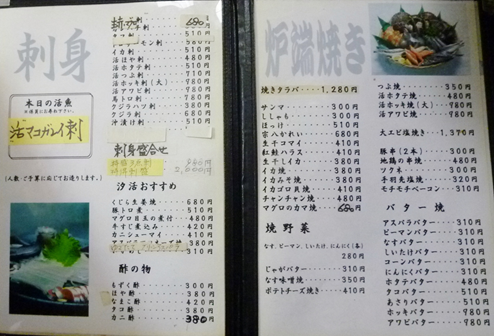 刺身
本日の活魚
活マコガレイ刺
イカ刺・・・・・510円
活ほや刺・・・・480円
活ホタテ刺・・・510円
活つぶ刺・・・・710円
活ホッキ刺(大)・780円
活アワビ刺・・・780円
馬トロ刺・・・・780円
クジラハツ刺・・380円
クジラ刺・・・・680円
沖漬け刺・・・・510円
刺身盛合せ
汐活おすすめ
くじら生姜焼・・680円
豚トロ煮・・・・510円
マグロ目玉の煮付・480円
牛すじ煮込み・・420円
カニシューマイ・410円
酢の物
もずく酢・・・・300円
ほや酢・・・・・380円
なまこ酢・・・・420円
タコ酢・・・・・380円
カニ酢・・・・・380円
炉端焼き
焼きタラバ・・・・1,280円
サンマ・・・・・300円
ししゃも・・・・300円
ほっけ・・・・・510円
宗八かれい・・・680円
生干コマイ・・・400円
紅鮭ハラス・・・410円
生干しイカ・・・380円
イカ焼・・・・・380円
イカみそ焼・・・380円
イカゴロ貝焼・・410円
チャンチャン焼・480円
マグロのカマ焼・680円
焼野菜
なす、ピーマン、しいたけ、にんにく(各)
280円
じゃがバター・・310円
なす味噌焼・・・350円
ポテトチーズ焼・410円
つぶ焼・・・・・350円
活ホタテ焼・・・480円
活ホッキ焼(大)・780円
活アワビ焼・・・780円
大エビ塩焼き・・1,370円
豚串(2本)・・・300円
地鶏の串焼・・・480円
ツクネ・・・・・300円
手羽先塩焼・・・320円
モチモチベーコン・310円
バター焼
アスパラバター・310円
ピーマンバター・310円
なすバター・・・310円
しいたけバター・310円
コーンバター・・310円
にんにくバター・310円
ホタテバター・・480円
タコバター・・・510円
あさりバター・・510円
ホッキバター・・780円
アワビバター・・780円